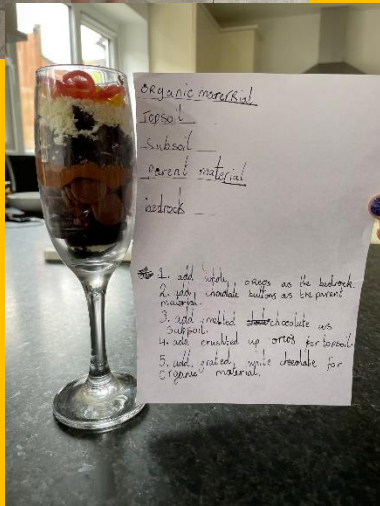 Organic materrial
Topsoil
Subsoil
Parent material
bedrock
1. add wholy oreos as the bedrock.
2. add, chocolate buttons as the parent
material.
3. add melted chocolate as
subsoil.
4. add crushted up oreos for topsoil.
5. add, grated, white chocolate for
Organic material.